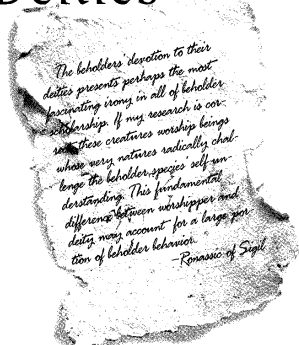 Deities
The beholders' devotion to their
deities presents perhaps the most
fascinating irony in all of beholder
scholarship. If my research is cor-
rect, these creatures worship beings
whose very natures radically chal-
lenge the beholder species' self-un-
derstanding. This fundamental
difference between worshipper and
deity may account for a large por-
tion of beholder behavior.
—Ronassic of Sigil